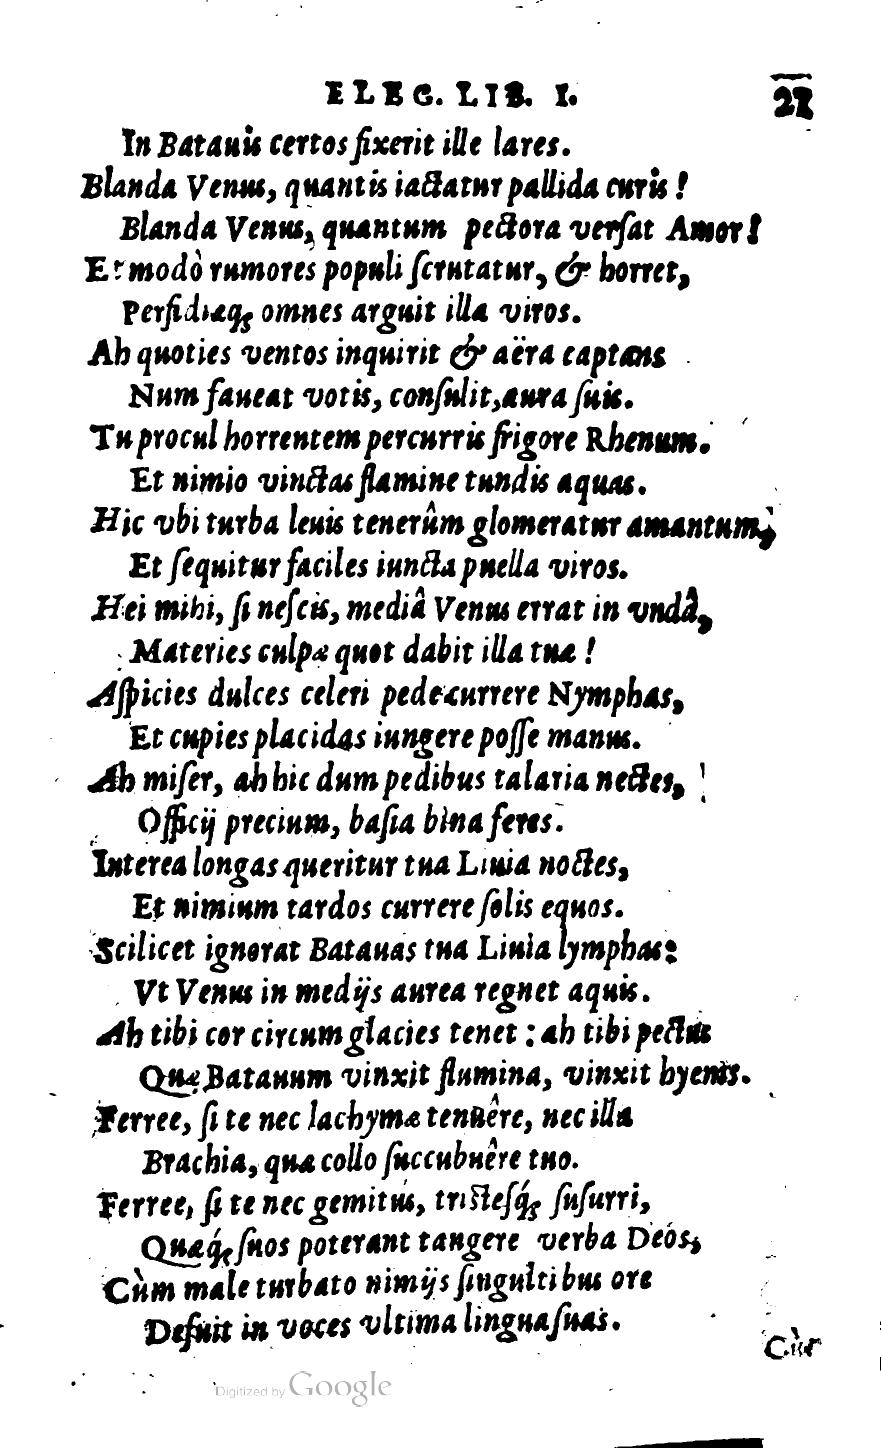 ELEG. LIB. I. 21
In Batauis certos fixerit ille lares.
Blanda Venus, quantis iactatur pallida curis!
Blanda Venus, quantum pectora verſat Amor!
Et modò rumores populi ſcrutatur, & horret,
Perfidiæq; omnes arguit illa viros.
Ah quoties ventos inquirit & aëra captans
Num faueat votis, conſulit, aura ſuis.
Tu procul horrentem percurris frigore Rhenum.
Et nimio vinctas flamine tundis aquas.
Hic vbi turba leuis tenerûm glomeratur amantum,
Et ſequitur faciles iuncta puella viros.
Hei mihi, ſi neſcis, mediâ Venus errat in vndâ,
Materies culpæ quot dabit illa tuæ!
Aſpicies dulces celeri pede currere Nymphas,
Et cupies placidas iungere poſſe manus.
Ah miſer, ah hic dum pedibus talaria nectes,
Officij precium, baſia bina feres.
Interea longas queritur tua Liuia noctes,
Et nimium tardos currere ſolis equos.
Scilicet ignorat Batauas tua Liuia lymphas:
Vt Venus in medijs aurea regnet aquis.
Ah tibi cor circum glacies tenet: ah tibi pectus
Quæ Batauum vinxit flumina, vinxit hyems.
Ferree, ſi te nec lachymæ tenuêre, nec illa
Brachia, quæ collo ſuccubuêre tuo.
Ferree, ſi te nec gemitus, triſteſq́; ſuſurri,
Quæq́; ſuos poterant tangere verba Deós,
Cùm male turbato nimijs ſingultibus ore
Deſuit in voces vltima lingua ſuas.
Cùr
Digitized by Google